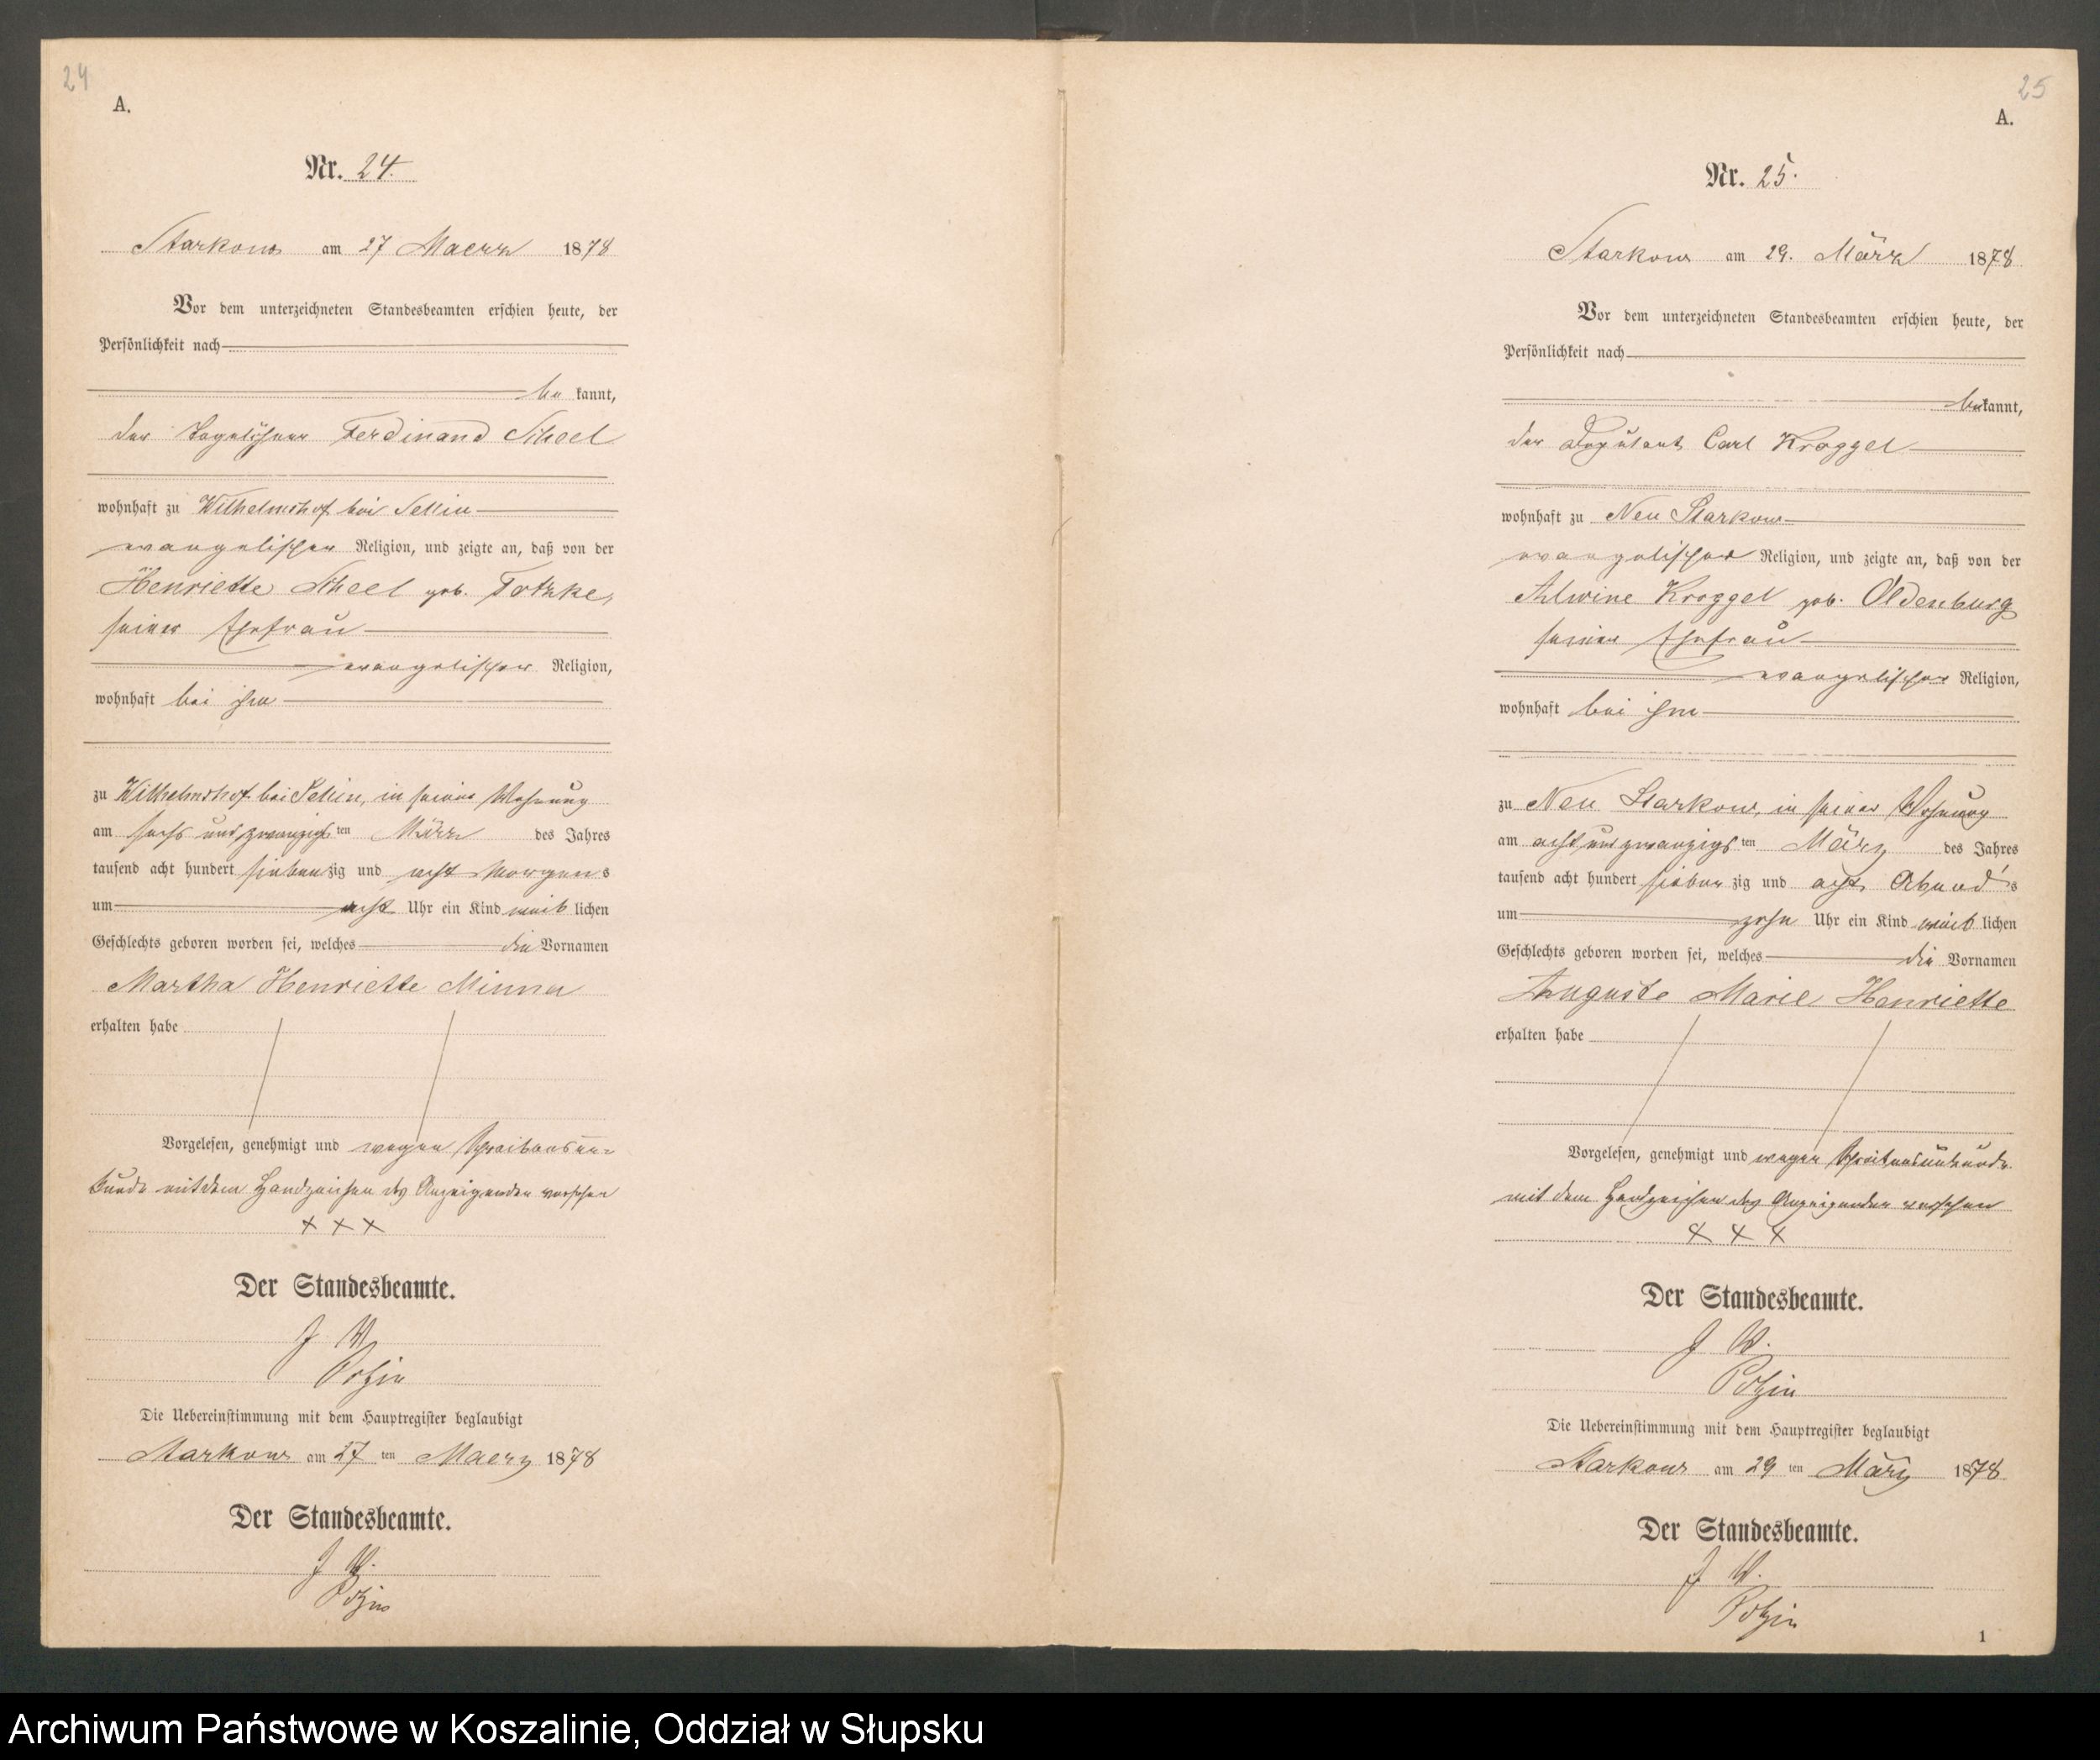 24
A.
Nr. 24.
Starkow am 27 Maerz 1878
Vor dem unterzeichneten Standesbeamten erschien heute, der
Persönlichkeit nach
be kannt,
der Tagelöhner Ferdinand Scheel
wohnhaft zu Wilhelmshof bei Sellin
evangelischer Religion, und zeigte an, daß von der
Henriette Scheel geb. Totzke,
seiner Ehefrau
evangelischer Religion,
wohnhaft bei ihm
zu Wilhelmshof bei Sellin, in seiner Wohnung
am sechs und zwanzigsten März des Jahres
tausend acht hundert siebenzig und acht Morgens
um acht Uhr ein Kind weiblichen
Geschlechts geboren worden sei, welches die Vornamen
Martha Henriette Minna
erhalten habe
Vorgelesen, genehmigt und wegen Schreibensun-
kunde mit dem Handzeichen des Anzeigenden versehen
+ + +
Der Standesbeamte.
J V.
Polzin
Die Uebereinstimmung mit dem Hauptregister beglaubigt
Starkow am 27 ten Maerz 1878
Der Standesbeamte.
J V.
Polzin
25
A.
Nr. 25.
Starkow am 29. März 1878
Vor dem unterzeichneten Standesbeamten erschien heute, der
Persönlichkeit nach
bekannt,
der Deputant Carl Kroggel
wohnhaft zu Neu Starkow
evangelischer Religion, und zeigte an, daß von der
Alwine Kroggel geb. Oldenburg
seiner Ehefrau
evangelischer Religion,
wohnhaft bei ihm
zu Neu Starkow, in seiner Wohnung
am acht und zwanzigsten März des Jahres
tausend acht hundert siebenzig und acht Abend's
um zehn Uhr ein Kind weiblichen
Geschlechts geboren worden sei, welches die Vornamen
Auguste Marie Henriette
erhalten habe
Vorgelesen, genehmigt und wegen Schreibensunkunde
mit dem Handzeichen des Anzeigenden versehen
+ + +
Der Standesbeamte.
J V.
Polzin
Die Uebereinstimmung mit dem Hauptregister beglaubigt
Starkow am 29 ten März 1878
Der Standesbeamte.
J V.
Polzin
1
Archiwum Państwowe w Koszalinie, Oddział w Słupsku